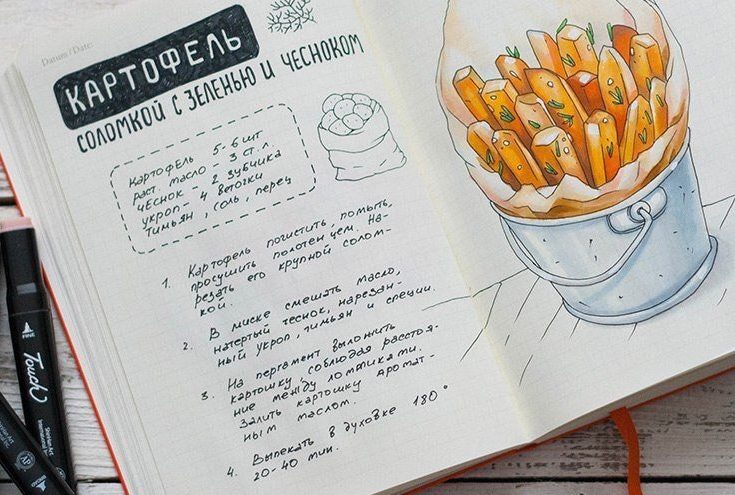 Datum / Date:
КАРТОФЕЛЬ
СОЛОМКОЙ С ЗЕЛЕНЬЮ И ЧЕСНОКОМ
КАРТОФЕЛЬ 5-6 шт
раст. масло - 3 ст. л.
чЕСНОК - 2 зубчика
укроп - 4 веточки
тимьян, соль, перец
1. Картофель почистить, помыть,
просушить полотенцем. На-
резать его крупной солом-
кой.
2. В миске смешать масло,
натертый чеснок, нарезан-
ный укроп, тимьян и специи.
3. На пергамент выложить
картошку, соблюдая расстоя-
ние между ломтиками.
Залить картошку аромат-
ным маслом.
4. Выпекать в духовке 180°
20-40 мин.
FINE
Touch